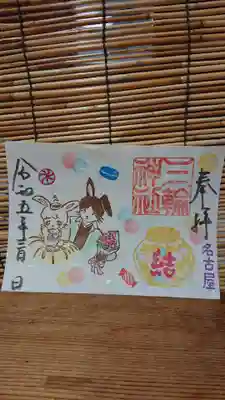 奉拝
名古屋
三輪
神社
結
令和五年二月 日